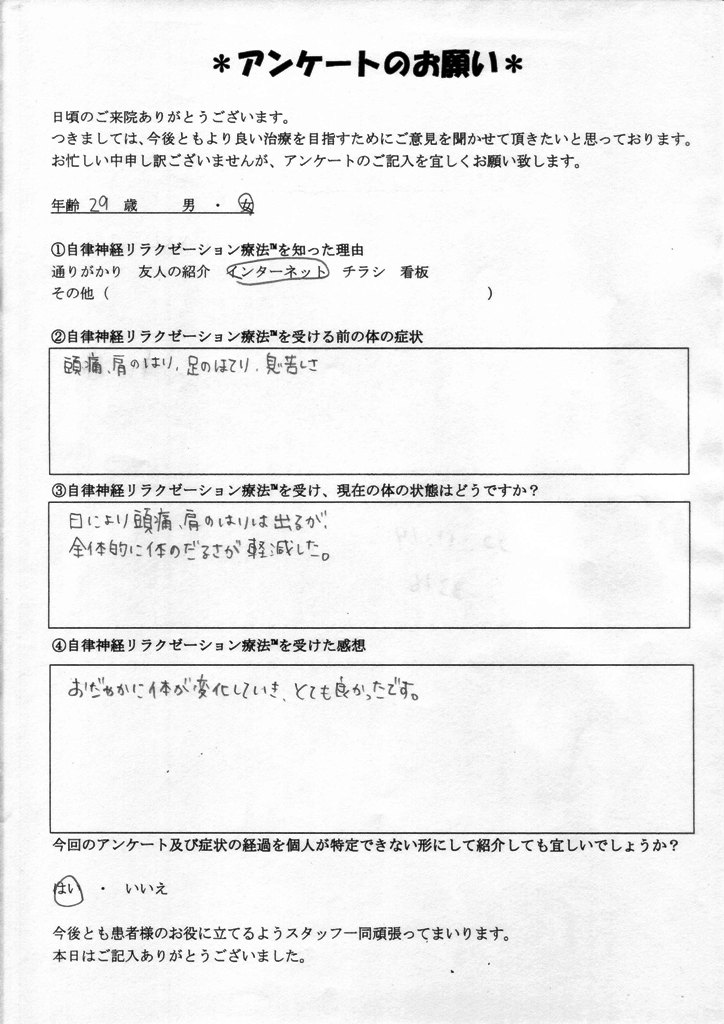 ＊アンケートのお願い＊
日頃のご来院ありがとうございます。
つきましては、今後ともより良い治療を目指すためにご意見を聞かせて頂きたいと思っております。
お忙しい中申し訳ございませんが、アンケートのご記入を宜しくお願い致します。
年齢 29 歳　　　男　・　女
①自律神経リラクゼーション療法™を知った理由
通りがかり　友人の紹介　インターネット　チラシ　看板
その他（　　　　　　　　　　　　　　　　　　　　　　　　　　）
②自律神経リラクゼーション療法™を受ける前の体の症状
頭痛、肩のはり、足のほてり、息苦しさ
③自律神経リラクゼーション療法™を受け、現在の体の状態はどうですか？
日により頭痛、肩のはりは出るが、
全体的に体のだるさが軽減した。
④自律神経リラクゼーション療法™を受けた感想
おだやかに体が変化していき、とても良かったです。
今回のアンケート及び症状の経過を個人が特定できない形にして紹介しても宜しいでしょうか？
はい　・　いいえ
今後とも患者様のお役に立てるようスタッフ一同頑張ってまいります。
本日はご記入ありがとうございました。